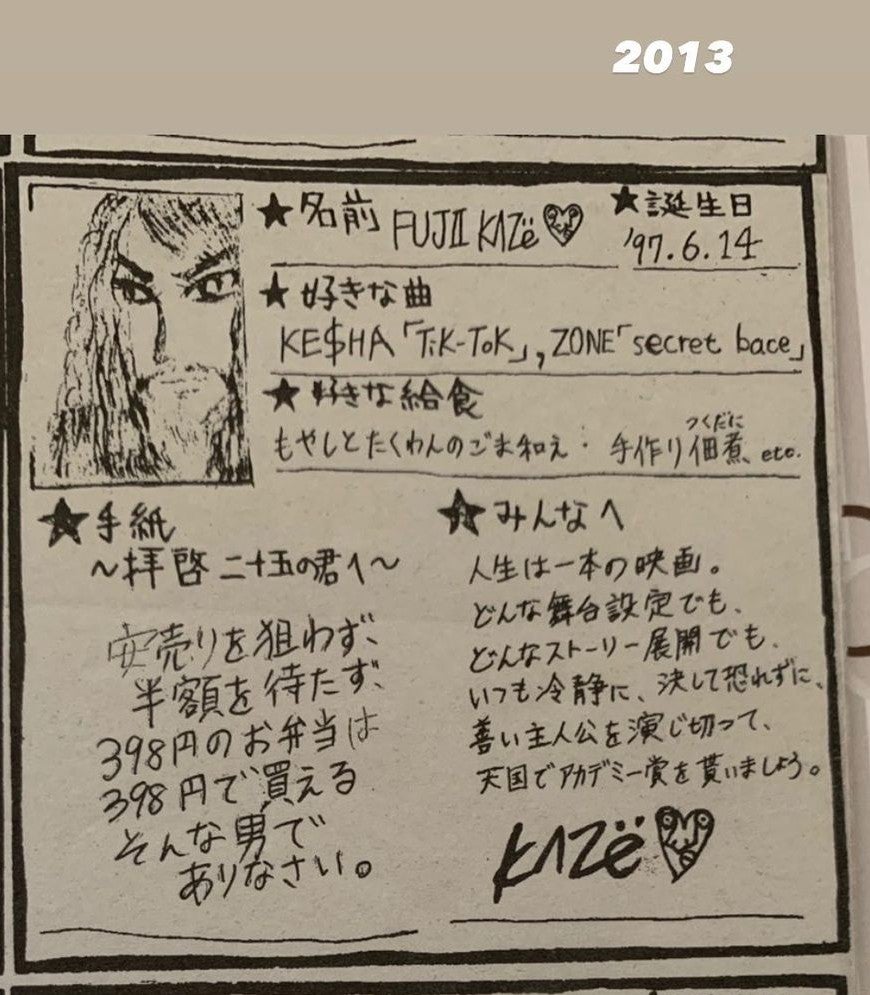 2013
★名前 FUJII KAZë
★誕生日
'97.6.14
★好きな曲
KE$HA「TiK-ToK」, ZONE「secret bace」
★好きな給食
つくだに
もやしとたくわんのごま和え・手作り佃煮、etc.
★手紙
~拝啓 二十五の君へ~
安売りを狙わず、
半額を待たず、
398円のお弁当は
398円で買える
そんな男で
ありなさい。
★みんなへ
人生は一本の映画。
どんな舞台設定でも、
どんなストーリー展開でも、
いつも冷静に、決して恐れずに、
善い主人公を演じ切って、
天国でアカデミー賞を貰いましょう。
KAZë